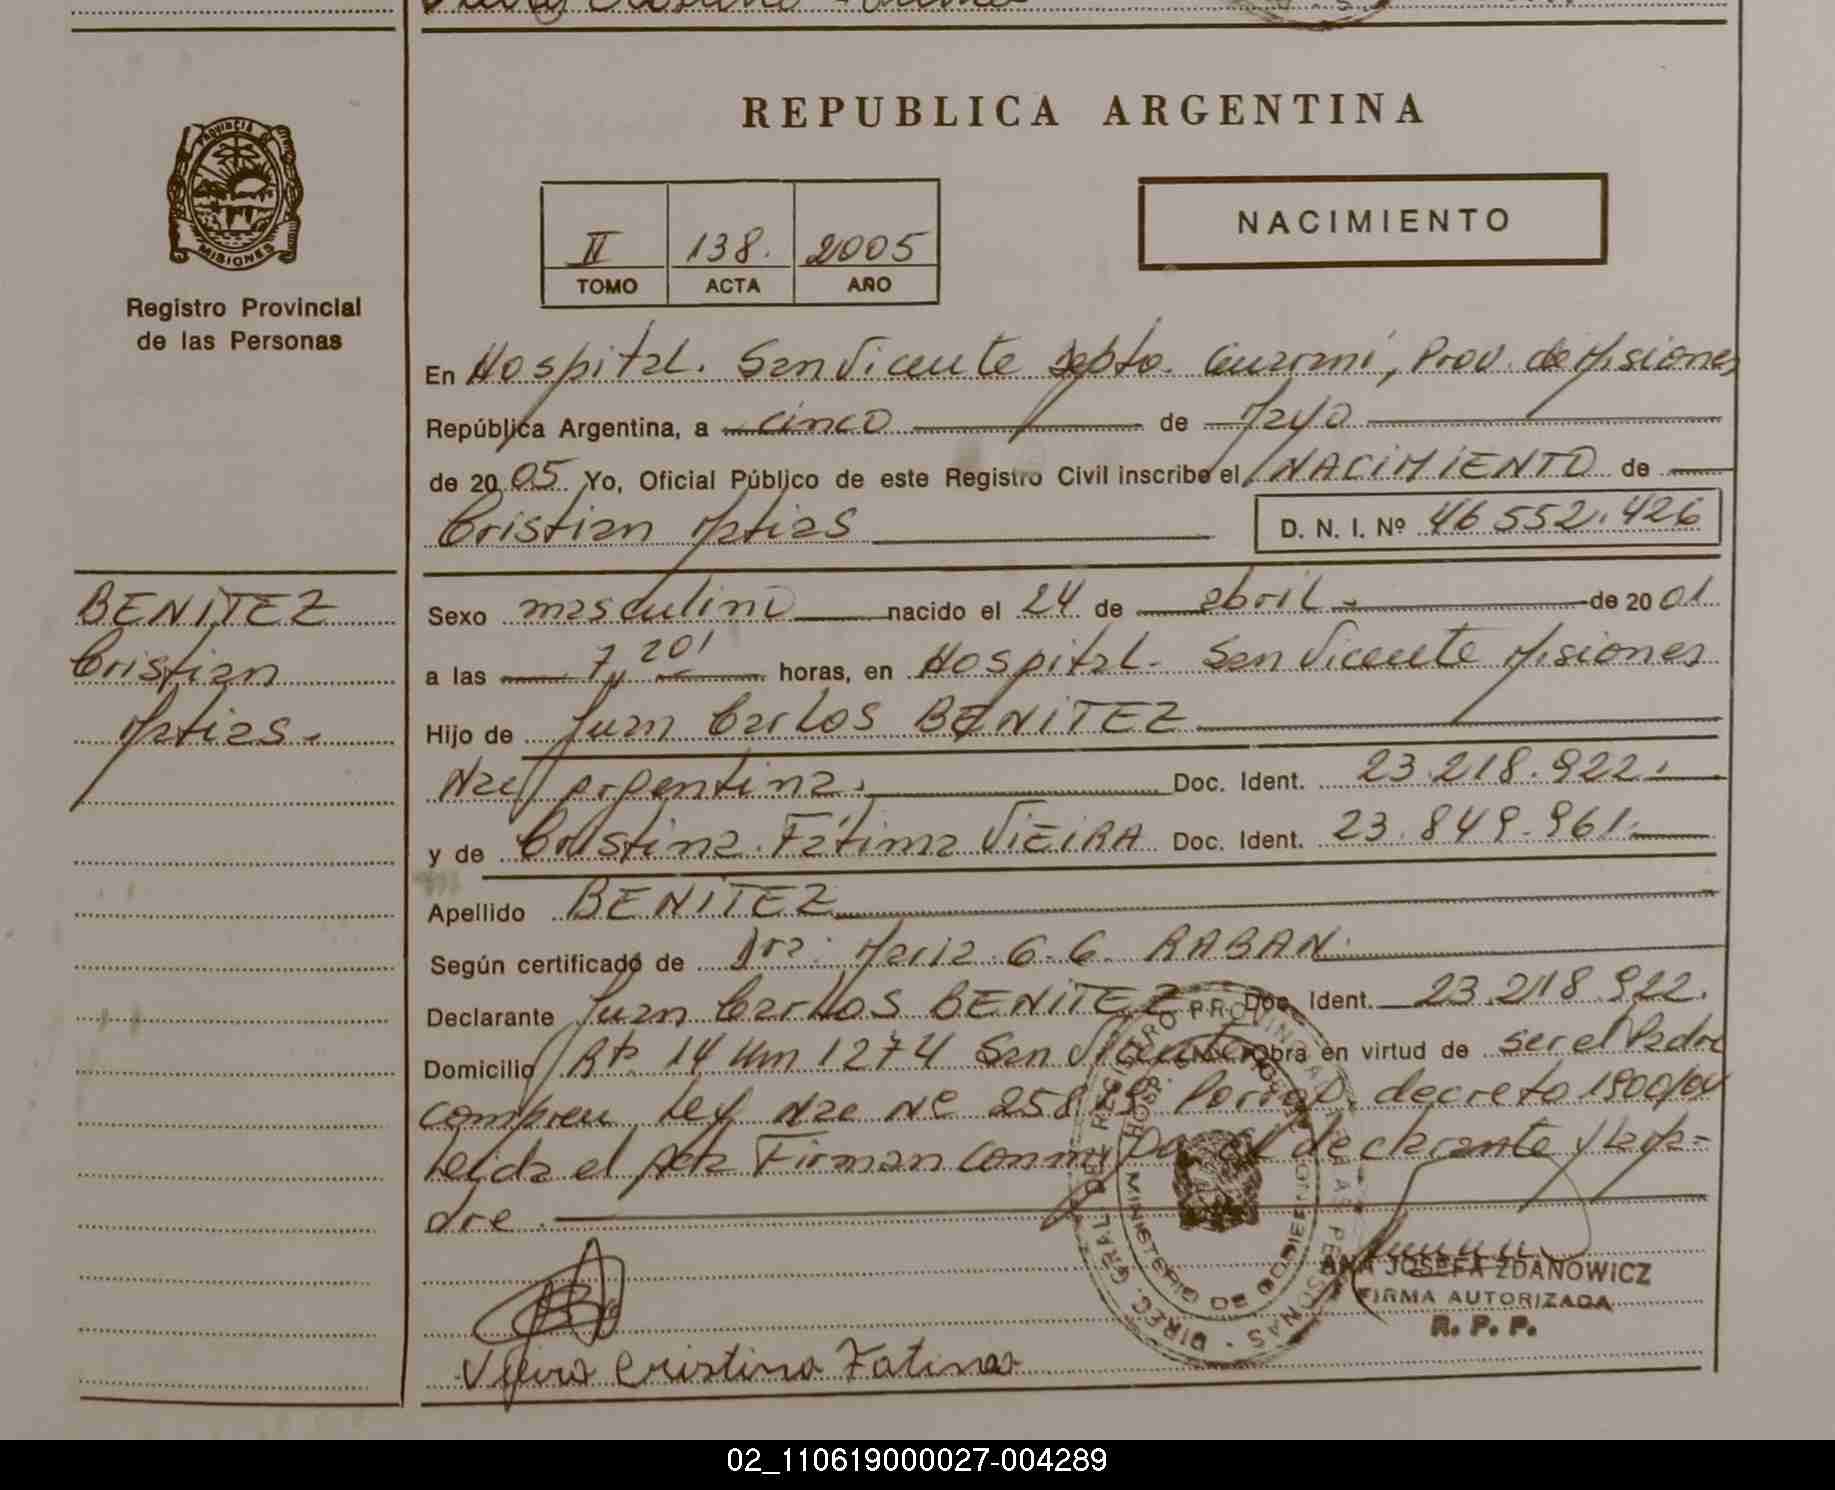 REPUBLICA ARGENTINA
NACIMIENTO
II 138. 2005
TOMO ACTA AÑO
PROVINCIA DE
MISIONES
Registro Provincial
de las Personas
En Hospital. San Vicente Depto. Guaraní, Prov. de Misiones
República Argentina, a cinco de Mayo
de 2005 Yo, Oficial Público de este Registro Civil inscribe el NACIMIENTO de
Cristian Matias
D. N. I. Nº 46 552. 426
BENITEZ
Cristian
Matias.
Sexo masculino nacido el 24 de abril de 2001
a las 7,, 20' horas, en Hospital. San Vicente Misiones
Hijo de Juan Carlos BENITEZ
Nac/ Argentina. Doc. Ident. 23.218.922.
y de Cristina Fátima VIEIRA Doc. Ident. 23.849.961.
Apellido BENITEZ
Según certificado de Dra. Maria G. G. RABAN.
Declarante Juan Carlos BENITEZ Doc. Ident. 23.218.922.
Domicilio Rta 14 Km 1274 San Vicente Obra en virtud de ser el Padre
Ley Nac Nº decreto
leida el Acta Firman conmigo el declarante y la Ma-
dre.
DIREC. GRAL. DEL REGISTRO PROVINCIAL DE LAS PERSONAS
MINISTERIO DE GOBIERNO
ANA JOSEFA ZDANOWICZ
FIRMA AUTORIZADA
R. P. P.
Vieira Cristina Fatima
02_110619000027-004289